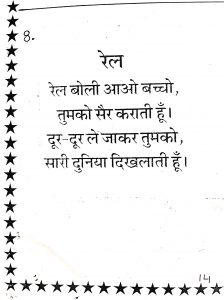 8.
रेल
रेल बोली आओ बच्चो,
तुमको सैर कराती हूँ।
दूर-दूर ले जाकर तुमको,
सारी दुनिया दिखलाती हूँ।
14